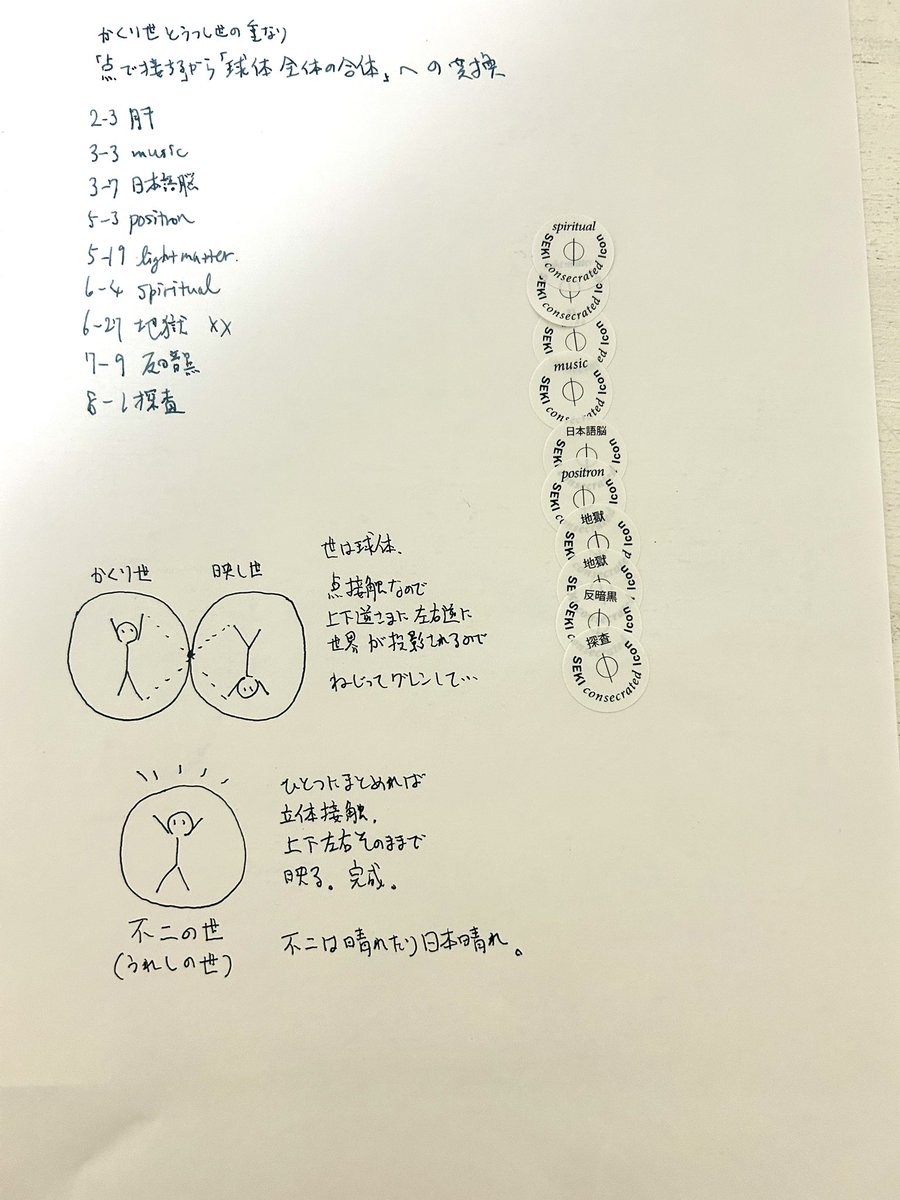 かくり世とうつし世の重なり
「点で接する」から「球体全体の合体」への変換
2-3 肝
3-3 music
3-7 日本語脳
5-3 positron
5-19 lightmatter.
6-4 spiritual
6-27 地獄 xx
7-9 反暗黒
8-1 探査
spiritual
SEKI consecrated Icon
consecrated Ic
ed Icon
music
SEKI consecrated Icon
日本語脳
SEKI Icon
positron
SEKI co Icon
地獄
SEKI d Icon
地獄
SE Icon
反暗黒
SEKI Icon
探査
SEKI consecrated Icon
かくり世 映し世
世は球体.
点接触なので
上下逆さまに左右逆に
世界が投影されるので
ねじってグレンして…
ひとつにまとめれば
立体接触.
上下左右そのままで
映る。完成。
不二の世
(うれしの世)
不二は晴れたり日本晴れ。